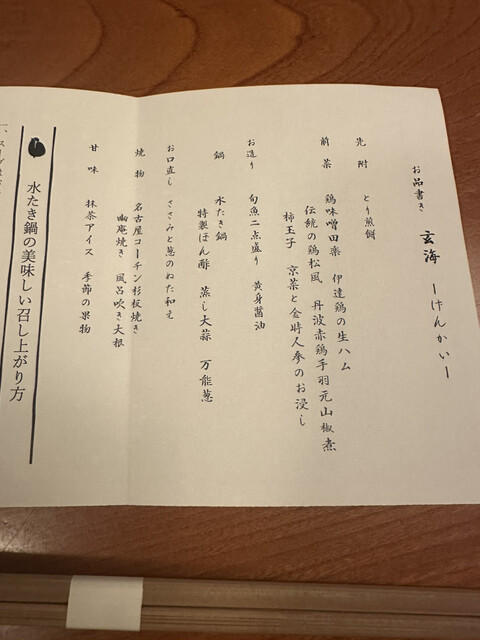 お品書き 玄海 ーけんかいー
先附 とり煎餅
前菜 鶏味噌田楽 伊達鶏の生ハム
伝統の鶏松風 丹波赤鶏手羽元山椒煮
柿玉子 京菜と金時人参のお浸し
お造り 旬魚二点盛り 黄身醤油
鍋 水たき鍋
特製ぽん酢 蒸し大蒜 万能葱
お口直し ささみと葱のぬた和え
焼物 名古屋コーチン杉板焼き
幽庵焼き 風呂吹き大根
甘味 抹茶アイス 季節の果物
水たき鍋の美味しい召し上がり方